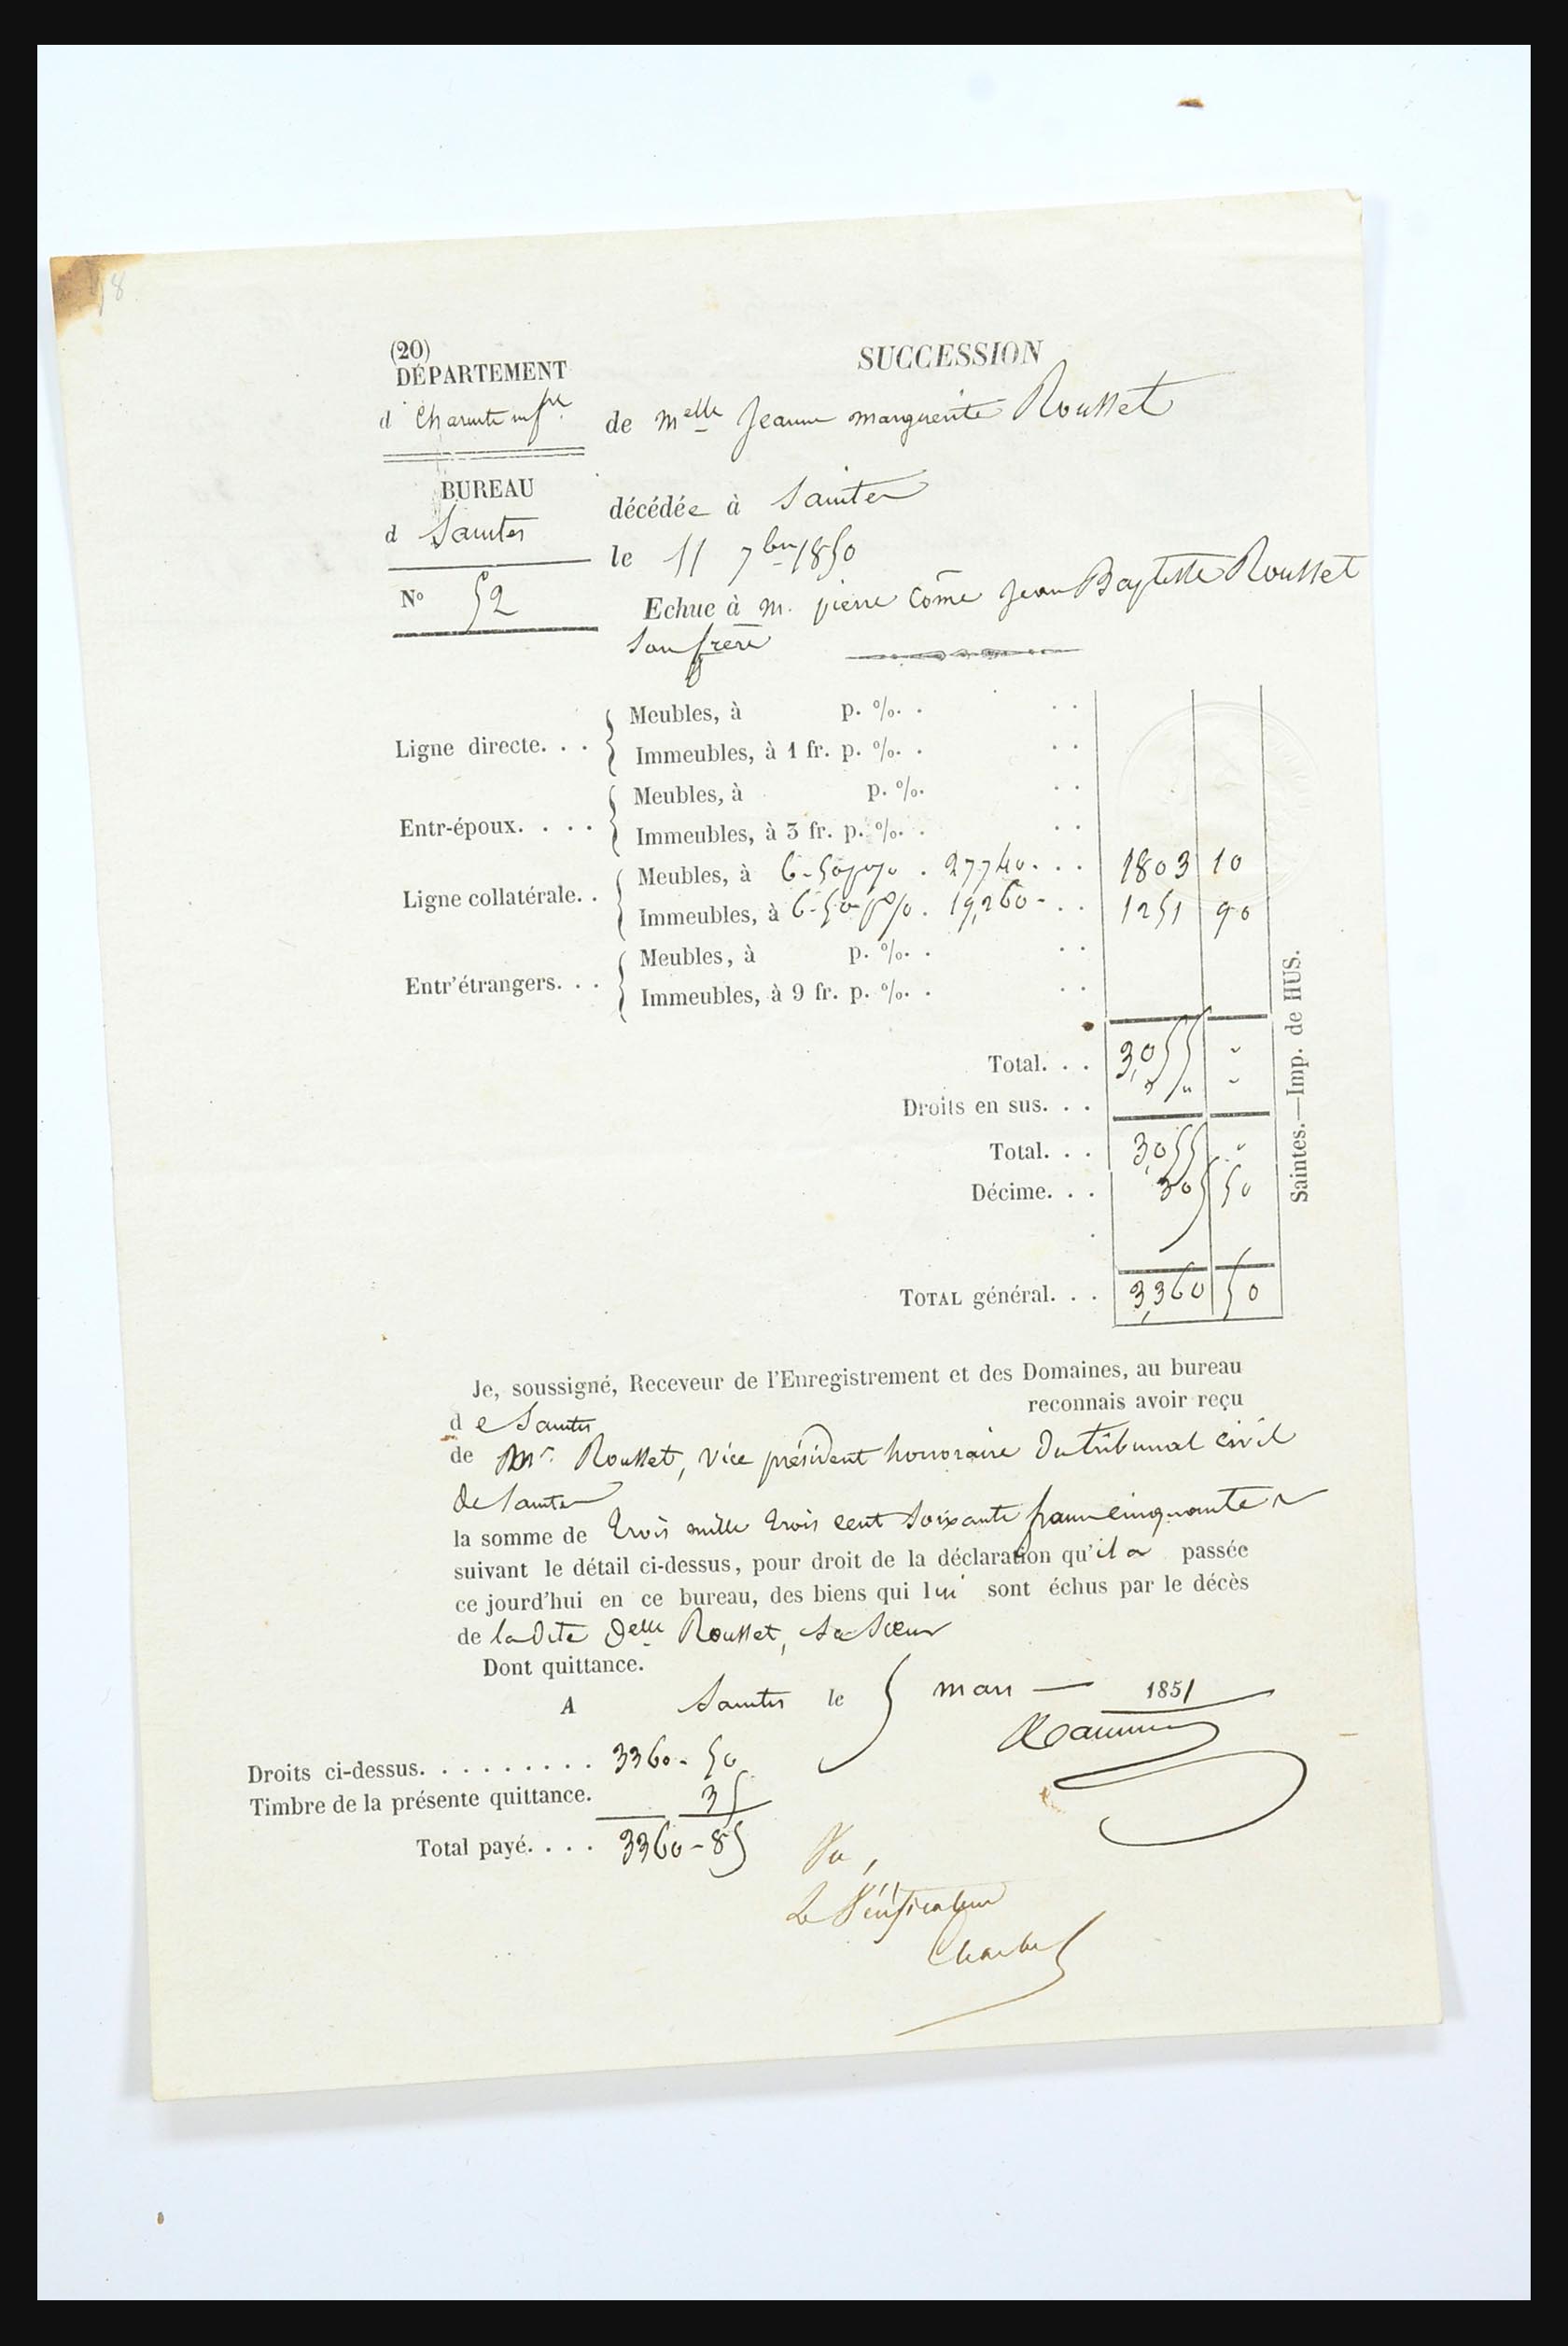 8
(20)
DÉPARTEMENT
d Charente infre
BUREAU
d Saintes
N° 52
SUCCESSION
de Melle Jeanne marguerite Rousset
décédée à Saintes
le 11 7bre 1850
Echue à M. pierre Côme Jean Baptiste Rousset
son frère
Ligne directe. . . Meubles, à p. %. . . .
Immeubles, à 1 fr. p. %. . . .
Entr-époux. . . . Meubles, à p. %. . .
Immeubles, à 3 fr. p. %. . . .
Ligne collatérale. . Meubles, à 6-50 p % . 27740. . . 1803 10
Immeubles, à 6-50 p % . 19,260 - . . 1251 90
Entr'étrangers. . . Meubles, à p. %. . . .
Immeubles, à 9 fr. p. %. . . .
Total. . . 3,055 "
Droits en sus. . . " " "
Total. . . 3,055 "
Décime. . . 305 50
TOTAL général. . . 3,360 50
Saintes.—Imp. de HUS.
Je, soussigné, Receveur de l'Enregistrement et des Domaines, au bureau
d e Saintes reconnais avoir reçu
de Mr. Rousset, vice président honoraire du tribunal civil
de Saintes
la somme de trois mille trois cent soixante francs cinquante c
suivant le détail ci-dessus, pour droit de la déclaration qu'il a passée
ce jourd'hui en ce bureau, des biens qui lui sont échus par le décès
de la dite Delle Rousset, sa sœur
Dont quittance.
A Saintes le 5 mars 1851
Droits ci-dessus. . . . . . . . . 3360 - 50
Timbre de la présente quittance. 35
Total payé. . . . 3360 - 85
Vu,
Le Vérificateur